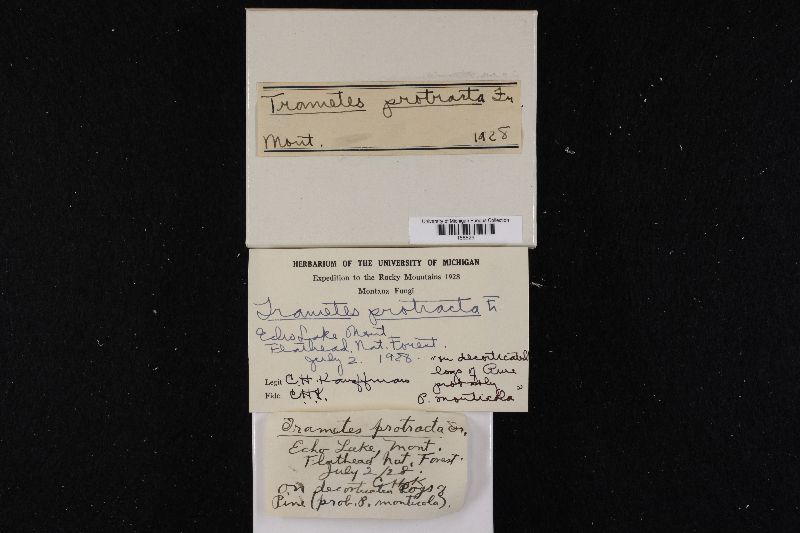 Trametes protracta Fr.
Mont. 1928
University of Michigan Fungus Collection
HERBARIUM OF THE UNIVERSITY OF MICHIGAN
Expedition to the Rocky Mountains 1928
Montana Fungi
Trametes protracta Fr
Echo Lake, Mont.
Flathead, Nat. Forest.
July 2. 1928.
"on decorticated
logs of Pine
probably
P. monticola"
Legit C.H. Kauffman
Fide C.H.K.
Trametes protracta Fr.
Echo Lake, Mont.
Flathead Nat. Forest.
July 2/28.
C.H.K
on decorticated logs of
Pine (prob. P. monticola).